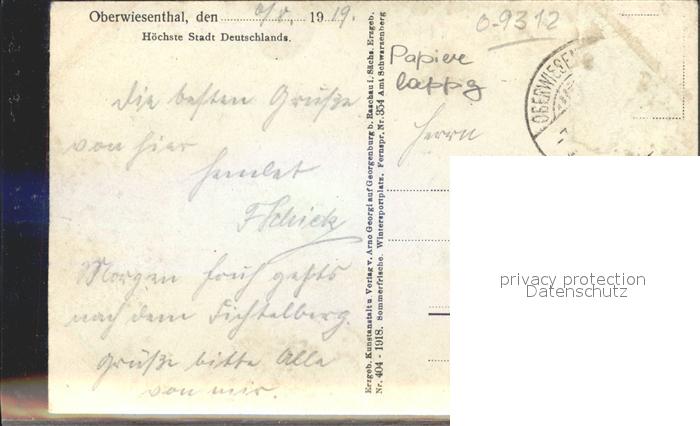 Oberwiesenthal, den 1919.
Höchste Stadt Deutschlands.
Die besten Grüße
von hier
sendet
F Schick
Morgen früh gehts
nach dem Fichtelberg.
Grüße bitte Alle
von mir.
Erzgeb. Kunstanstalt u. Verlag v. Arno Georgi auf Georgenburg b. Raschau i. Sächs. Erzgeb.
Nr. 404 - 1918. Sommerfrische. Wintersportplatz. Fernspr. Nr. 354 Amt Schwarzenberg
0-9312
Papier
lappg
Herrn
OBERWIESEN
privacy protection
Datenschutz